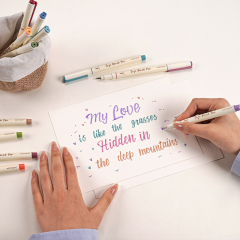 My Love
is like the grasses
Hidden in
the deep mountains